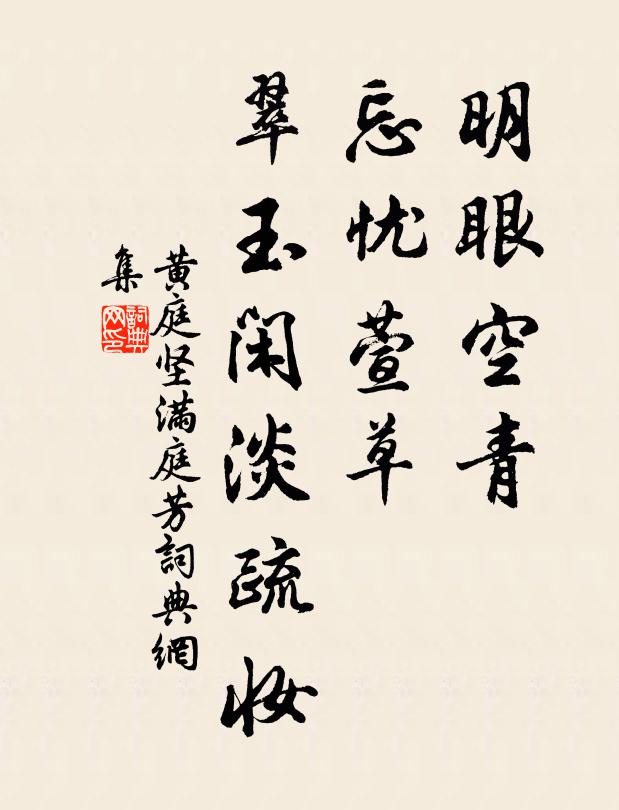 明眼空青
忘忧萱草
翠玉闲淡疏妆
黄庭坚满庭芳詞典網
集
詞典
网印